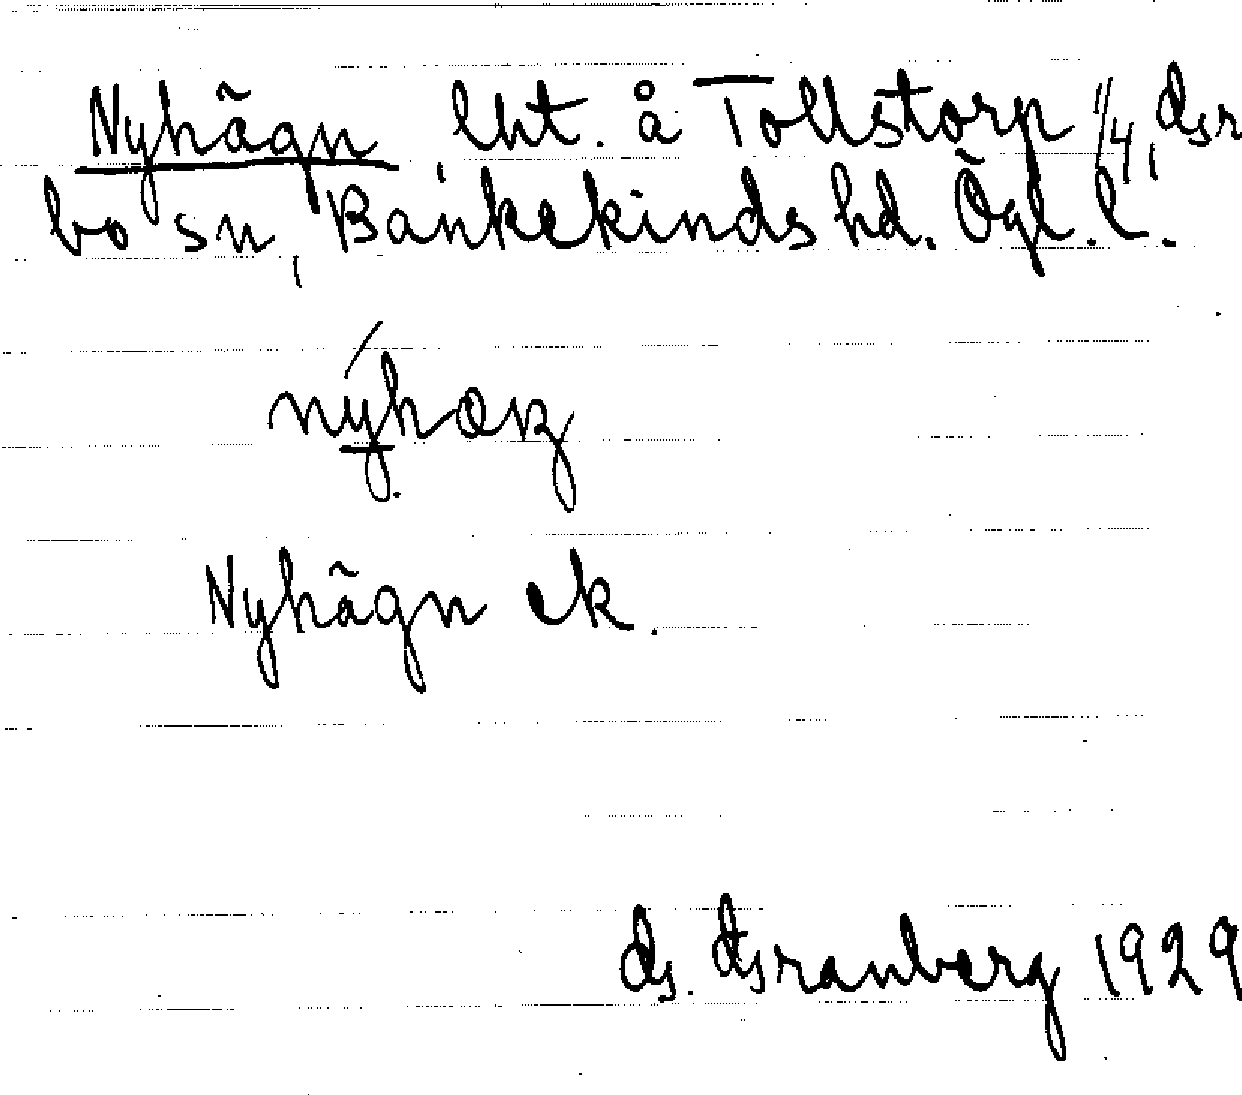 Nyhägn, lht. å Tollstorp 1/4, Gr
bo sn, Bankekinds hd. Ögl. l.
Nyhägn ek.
G. Granberg 1929